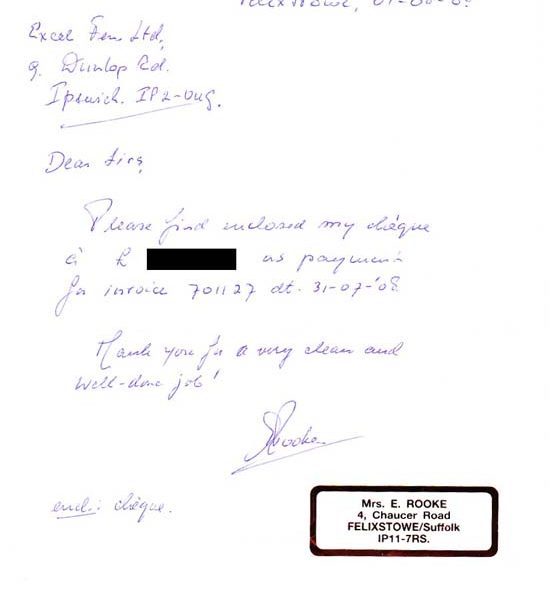 Felixstowe, 01-08-'08
Excel Fen Ltd,
9. Dunlop Rd.
Ipswich. IP2-0UG.
Dear Sirs,
Please find enclosed my chèque
à £ as payment
for invoice 701127 dt. 31-07-'08.
Thank you for a very clean and
well-done job!
Rooke
encl.: chèque.
Mrs. E. ROOKE
4, Chaucer Road
FELIXSTOWE/Suffolk
IP11-7RS.